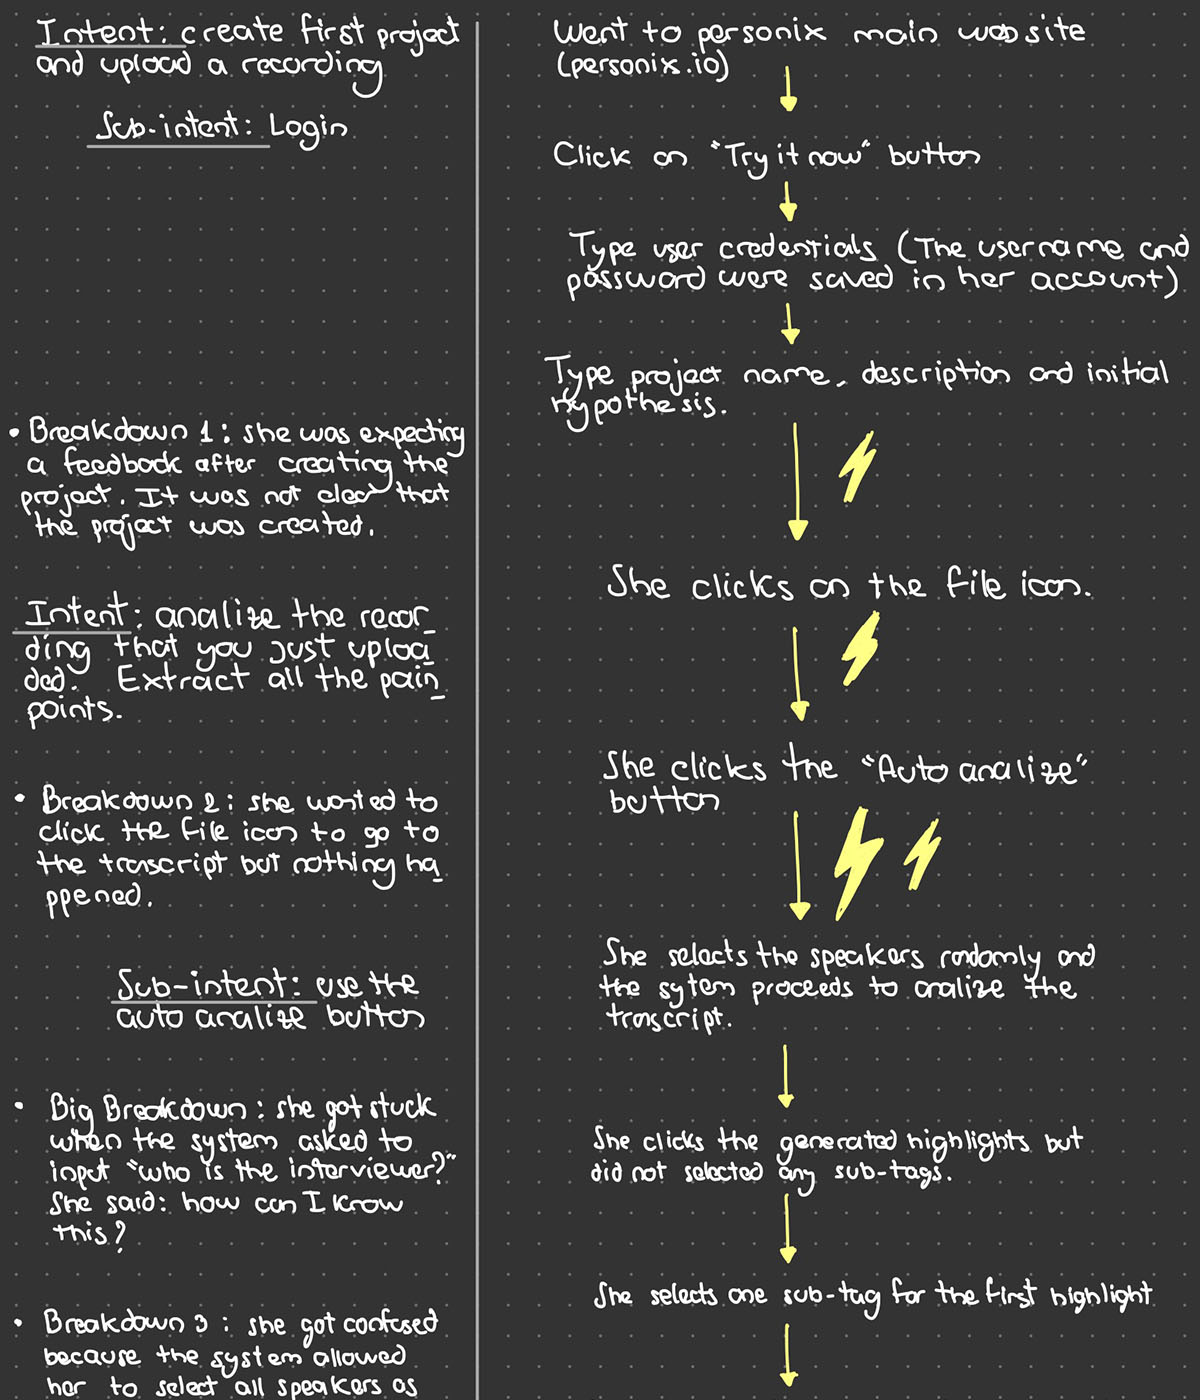 Intent: create first project
and upload a recording
Sub-intent: Login
• Breakdown 1: she was expecting
a feedback after creating the
project. It was not clear that
the project was created.
Intent: analize the recor_
ding that you just uploa_
ded. Extract all the pain_
points.
• Breakdown 2: she wanted to
click the file icon to go to
the transcript but nothing ha_
ppened.
Sub-intent: use the
auto analize button
• Big Breakdown: she got stuck
when the system asked to
input "who is the interviewer?"
She said: how can I know
this?
• Breakdown 3: she got confused
because the system allowed
her to select all speakers as
Went to personix main website
(personix.io)
Click on "Try it now" button
Type user credentials (The username and
password were saved in her account)
Type project name, description and initial
Hypothesis.
She clicks on the file icon.
She clicks the "Auto analize"
button
She selects the speakers randomly and
the sytem proceeds to analize the
transcript.
She clicks the generated highlights but
did not selected any sub-tags.
She selects one sub-tag for the first highlight